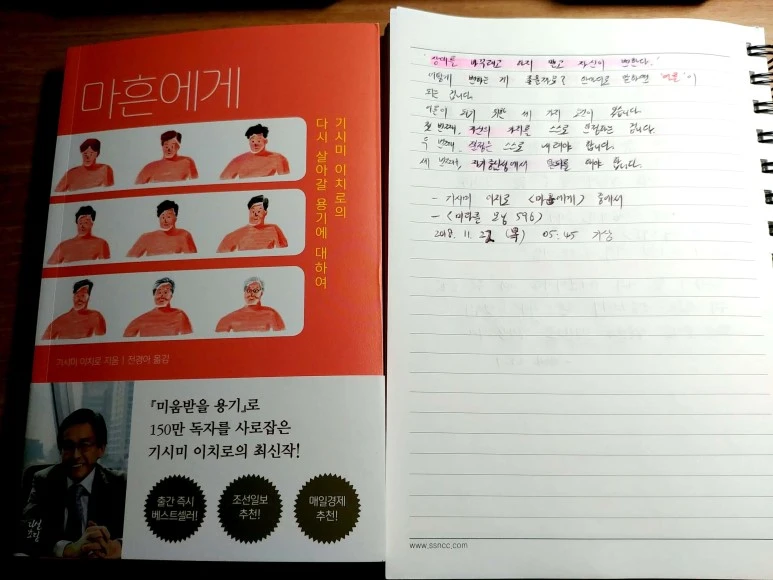 마흔에게
기시미 이치로의
다시 살아갈 용기에 대하여
기시미 이치로 지음 | 전경아 옮김
『미움받을 용기』로
150만 독자를 사로잡은
기시미 이치로의 최신작!
출간 즉시
베스트셀러!
조선일보
추천!
매일경제
추천!
'상대를 바꾸려고 하지 말고 자신이 변한다.'
어떻게 변하는 게 좋을까요? 한마디로 말하면 '어른'이
되는 겁니다.
어른이 되기 위한 세 가지 조건이 있습니다.
첫 번째, 자신의 가치를 스스로 인정하는 겁니다.
두 번째, 결정은 스스로 내려야 합니다.
세 번째, 자기중심성에서 탈피를 해야 합니다.
- 기시미 이치로 <마흔에게> 중에서
- <미라클 모닝 596>
2018. 11. 22 (목) 05:45 기상
www.ssncc.com